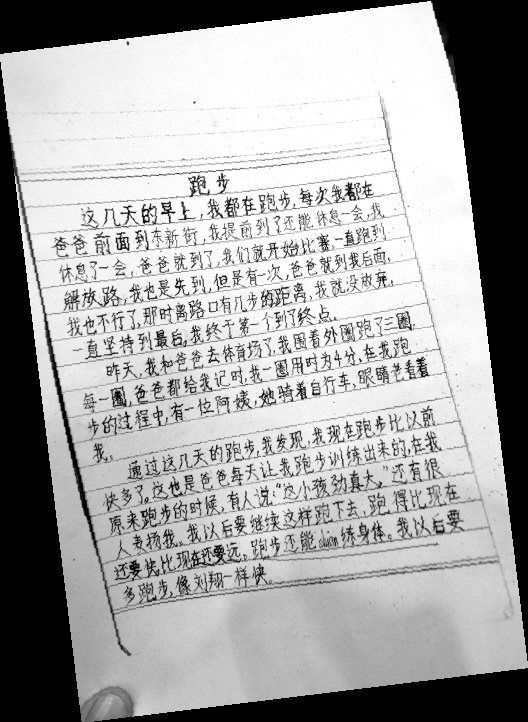 跑步
这几天的早上,我都在跑步,每次我都在
爸爸前面到本新街,我提前到了还能休息一会,我
休息了一会,爸爸就到了,我们就开始比赛一直跑到
解放路,我也是先到,但是有一次,爸爸就到我后面,
我也不行了,那时离路口有几步的距离,我就没放弃,
一直坚持到最后,我终于第一个到了终点。
昨天,我和爸爸去体育场了,我围着外圈跑了三圈,
每一圈,爸爸都给我记时,我一圈用时为4分,在我跑
步的过程中,有一位阿姨,她骑着自行车,眼睛老看着
我。
通过这几天的跑步,我发现,我现在跑步比以前
快多了,这也是爸爸每天让我跑步训练出来的,在我
原来跑步的时候,有人说:“这小孩劲真大。”还有很
人表扬我。我以后要继续这样跑下去,跑得比现在
还要快,比现在还要远。跑步还能duan练身体。我以后要
多跑步,像刘翔一样快。